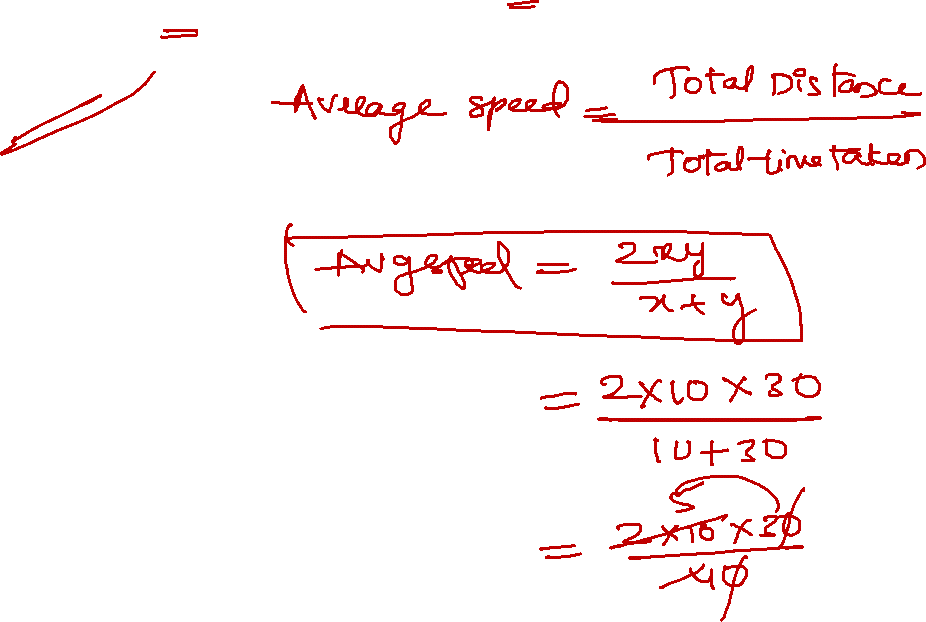 =
=
Average speed = Total Distance / Total time taken
Avg speed = 2xy / x + y
= 2 × 10 × 30 / 10 + 30
= 2 × 10 × 30 / 40